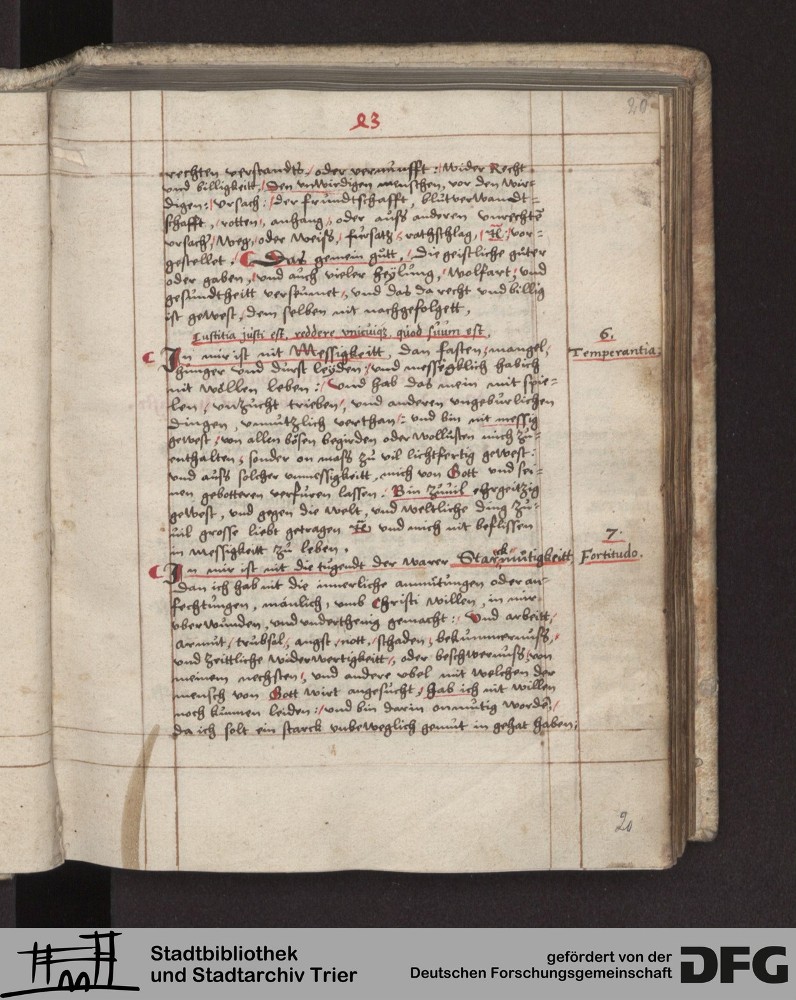 20
23
rechten verstandts, oder vernunfft: Wider Recht
und billigkeitt, Den unwirdigen menschen, vor den wir-
digen: ursach: der frundtschafft, blutverwandt-
schafft, rotten, anhang, oder auss anderen unrechte
ursach, weg, oder weiss, fursatz, rathschlag, vor-
gestellet. Das gemein gutt, die geistliche guter
oder gaben, und auch vieler heylung, wolfart, und
gesundtheitt versaumet, und das da recht und billig
ist gewest, dem selben nit nachgefolgett,
Iustitia justi est, reddere unicuiq; quod suum est.
6.
Temperantia.
In mir ist nit Messigkeitt, dan fasten, mangel,
hunger und durst leyden, und messegklich hab ich
nit wollen leben: Und hab das mein mit spie-
len, unzucht trieben, und anderen ungeburlichen
dingen, unnutzlich verthan: und bin nit messig
gewest, von allen bösen begirden oder wollusten mich zu-
enthalten, sonder on mass zu vil lichtfertig gewest:
und auss solcher unmessigkeitt, mich von Gott und sei-
nen gebotteren verfuren lassen. Bin zuvil ehrgeitzig
gewest, und gegen die welt, und weltliche ding zu-
vil grosse liebt getragen und mich nit beflissen
in messigkeitt zu leben.
7.
Fortitudo.
In mir ist nit die tugendt der warer Starckmutigkeitt,
dan ich hab nit die innerliche anmutungen oder an-
fechtungen, mänlich, umb Christi willen, in mir
uberwunden, und underthenig gemacht: Und arbeitt,
armut, trubsal, angst, nott, schaden, bekummernuss,
und zeittliche widerwertigkeitt, oder beschwernuss, von
meinem nechsten, und andere ubel mit welchen der
mensch von Gott wirt angesucht, hab ich nit willen
noch kunnen leiden: und bin darin onmutig worden,
da ich solt ein starck unbeweglich gemut in gehat haben:
20
Stadtbibliothek
und Stadtarchiv Trier
gefördert von der
Deutschen Forschungsgemeinschaft
DFG